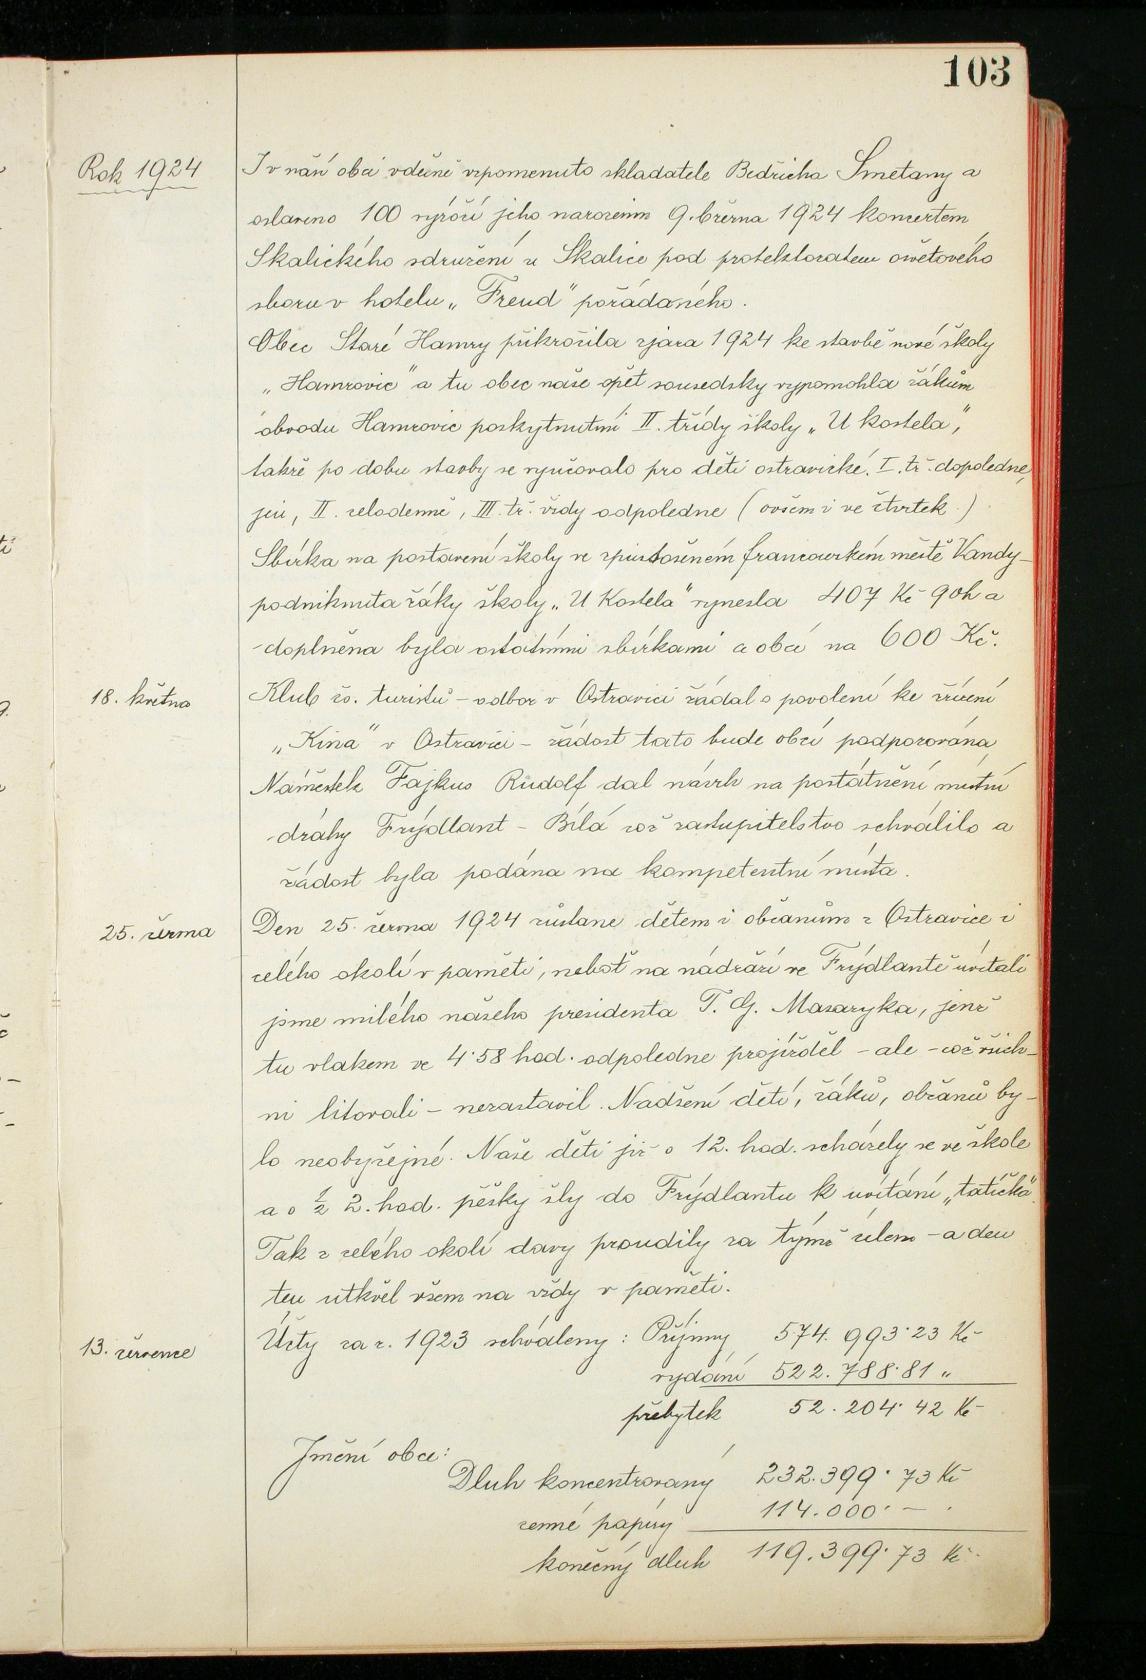 103
Rok 1924
I v naší obci vděčně vzpomenuto skladatele Bedřicha Smetany a
oslaveno 100 výročí jeho narozenin 9. března 1924 koncertem
Skalického sdružení z Skalice pod protektoratem osvětového
sboru v hotelu „Freud" pořádaného.
Obec Staré Hamry přikročila zjara 1924 ke stavbě nové školy
„Hamrovic" a tu obec naše opět sousedsky vypomohla žákům
obvodu Hamrovic poskytnutím II. třídy školy „U kostela",
takže po dobu stavby se vyučovalo pro děti ostravické. I. tř. dopoledne,
jen, II. celodenně, III. tř. vždy odpoledne (ovšem i ve čtvrtek.)
Sbírka na postavení školy ve zpustošeném francouzkém městě Vandy-
podniknuta žáky školy „U Kostela" vynesla 407 Kč 90h a
doplněna byla ostatními sbírkami a obcí na 600 Kč.
18. května
Klub čs. turistů - odbor v Ostravici žádal o povolení ke zřízení
„Kina" v Ostravici - žádost tato bude obcí podporována,
Náměstek Fajkus Rudolf dal návrh na postátnění místní
dráhy Frýdlant - Bílá což zastupitelstvo schválilo a
žádost byla podána na kompetentní místa.
25. června
Den 25. června 1924 zůstane dětem i občanům z Ostravice i
celého okolí v paměti, neboť na nádraží ve Frýdlantě uvítali
jsme milého našeho presidenta T. G. Masaryka, jenž
tu vlakem ve 4·58 hod. odpoledne projížděl - ale - což všich-
ni litovali - nezastavil. Nadšení dětí, žáků, občanů by-
lo neobyčejné. Naše děti již o 12. hod. scházely se ve škole
a o ½ 2. hod. pěšky šly do Frýdlantu k uvítání „tatíčka".
Tak z celého okolí davy proudily za týmž cílem - a den
ten utkvěl všem na vždy v paměti.
13. července
Účty za r. 1923 schváleny: Příjmy 574. 993·23 Kč
vydání 522. 788·81 „
přebytek 52. 204· 42 Kč
Jmění obce:
Dluh koncentrovaný 232.399· 73 Kč
cenné papíry 114.000· — ·
konečný dluh 119.399·73 Kč